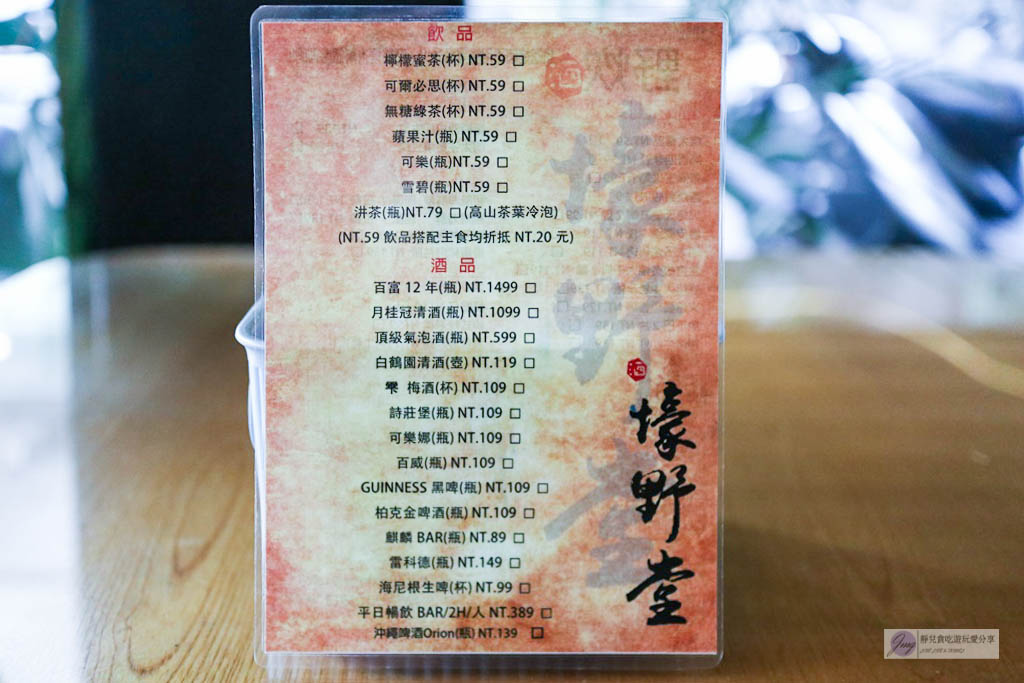 飲品
檸檬蜜茶(杯) NT.59 □
可爾必思(杯) NT.59 □
無糖綠茶(杯) NT.59 □
蘋果汁(瓶) NT.59 □
可樂(瓶)NT.59 □
雪碧(瓶)NT.59 □
汫茶(瓶)NT.79 □(高山茶葉冷泡)
(NT.59 飲品搭配主食均折抵 NT.20 元)
酒品
百富 12 年(瓶) NT.1499 □
月桂冠清酒(瓶) NT.1099 □
頂級氣泡酒(瓶) NT.599 □
白鶴園清酒(壺) NT.119 □
梅酒(杯) NT.109 □
詩莊堡(瓶) NT.109 □
可樂娜(瓶) NT.109 □
百威(瓶) NT.109 □
GUINNESS 黑啤(瓶) NT.109 □
柏克金啤酒(瓶) NT.109 □
麒麟 BAR(瓶) NT.89 □
雷科德(瓶) NT.149 □
海尼根生啤(杯) NT.99 □
平日暢飲 BAR/2H/人 NT.389 □
沖繩啤酒Orion(瓶) NT.139 □
壕野堂
靜兒貪吃遊玩愛分享